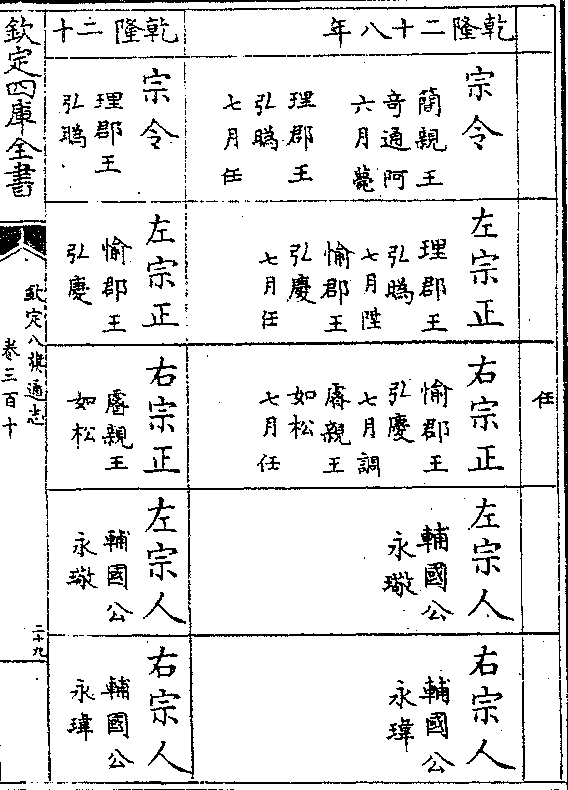 任
乾隆二十八年
宗令
簡親王
奇通阿
六月薨
理郡王
弘㬙
七月任
左宗正
理郡王
弘㬙
七月陞
愉郡王
弘慶
七月任
右宗正
愉郡王
弘慶
七月調
睿親王
如松
七月任
左宗人
輔國公
永璥
右宗人
輔國公
永瑋
乾隆二十
宗令
理郡王
弘㬙
左宗正
愉郡王
弘慶
右宗正
睿親王
如松
左宗人
輔國公
永璥
右宗人
輔國公
永瑋
欽定四庫全書
欽定八旗通志
卷三百十
二十九